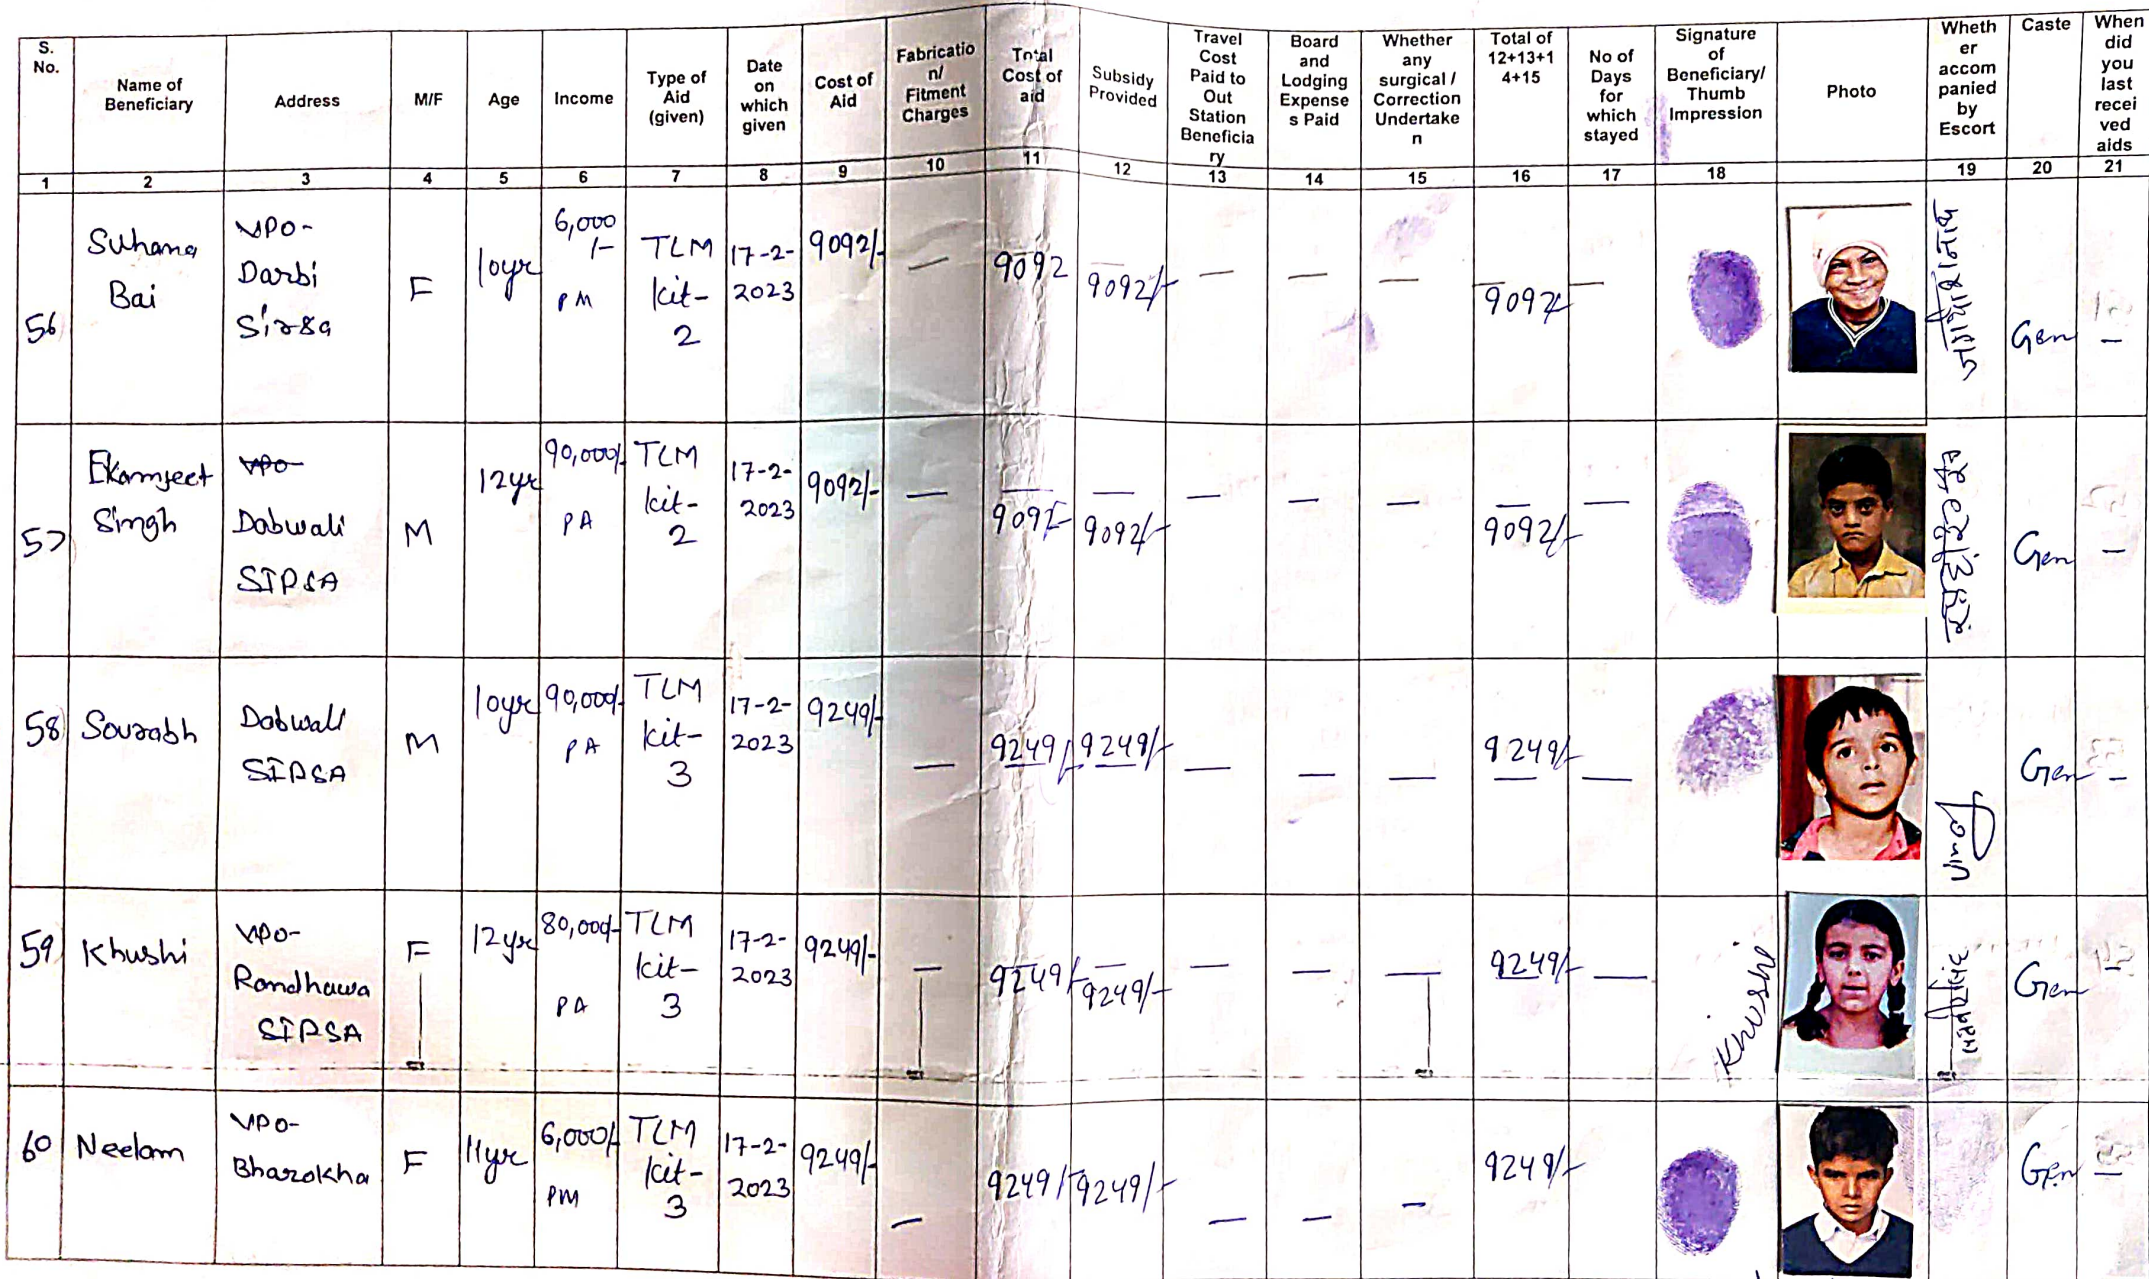 S. No.
Name of Beneficiary
Address
M/F
Age
Income
Type of Aid (given)
Date on which given
Cost of Aid
Fabricatio n/ Fitment Charges
Total Cost of aid
Subsidy Provided
Travel Cost Paid to Out Station Beneficia ry
Board and Lodging Expense s Paid
Whether any surgical / Correction Undertake n
Total of 12+13+1 4+15
No of Days for which stayed
Signature of Beneficiary/ Thumb Impression
Photo
Wheth er accom panied by Escort
Caste
When did you last recei ved aids
1 2 3 4 5 6 7 8 9 10 11 12 13 14 15 16 17 18 19 20 21
56 Suhana Bai VPO- Darbi Sirsa F 10yr 6,000 /- PM TLM kit- 2 17-2- 2023 9092/- — 9092 9092/- — — — 9092/- — Gen —
57 Ekamjeet Singh VPO- Dabwali SIRSA M 12yr 90,000/- PA TLM kit- 2 17-2- 2023 9092/- — 9092/- 9092/- — — — 9092/- — Gen —
58 Sourabh Dabwali SIRSA M 10yr 90,000/- PA TLM kit- 3 17-2- 2023 9249/- — 9249/- 9249/- — — — 9249/- — Gen —
59 Khushi VPO- Randhawa SIRSA F 12yr 80,000/- PA TLM kit- 3 17-2- 2023 9249/- — 9249/- 9249/- — — — 9249/- — Khushi Gen —
60 Neelam VPO- Bharokha F 11yr 6,000/- PM TLM kit- 3 17-2- 2023 9249/- — 9249/- 9249/- — — — 9249/- Gen —